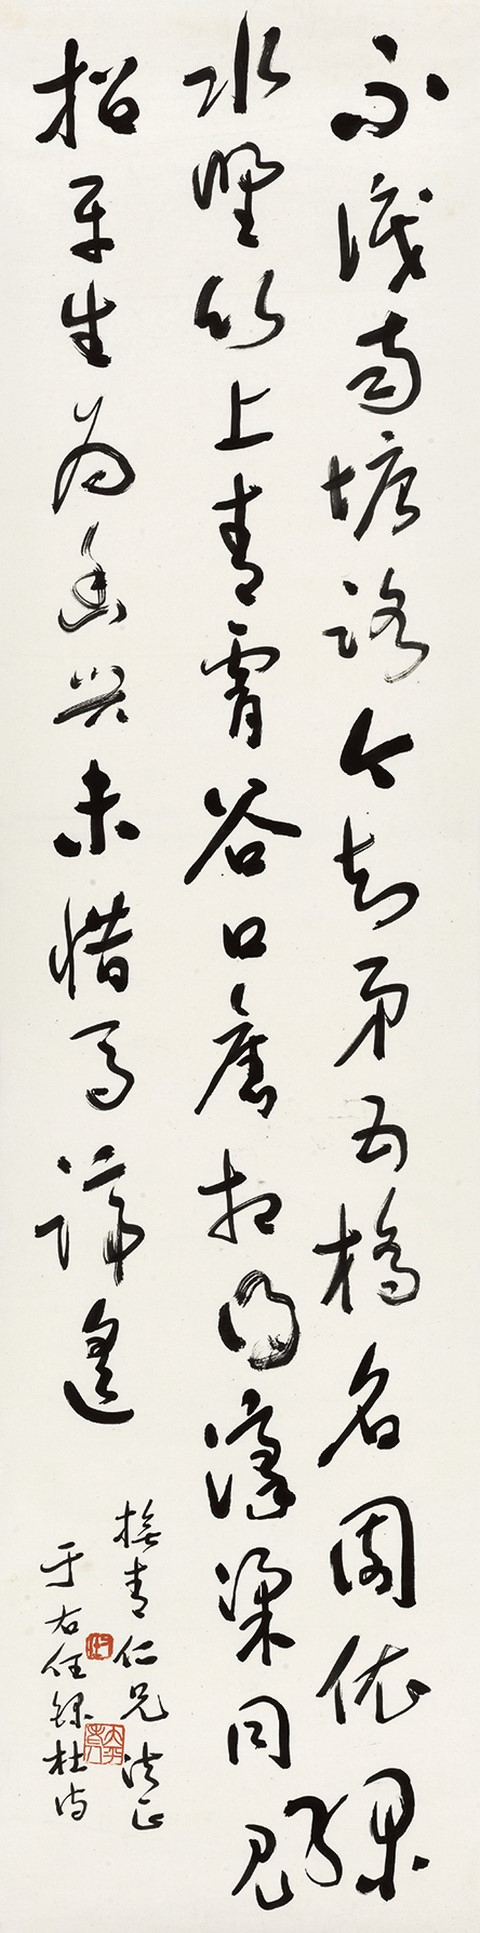 不識南塘路今知第五橋名園依綠
水野竹上青霄谷口舊相得濠梁同見
招平生為幽興未惜馬蹄遙
青仁兄法正
于右任錄杜詩